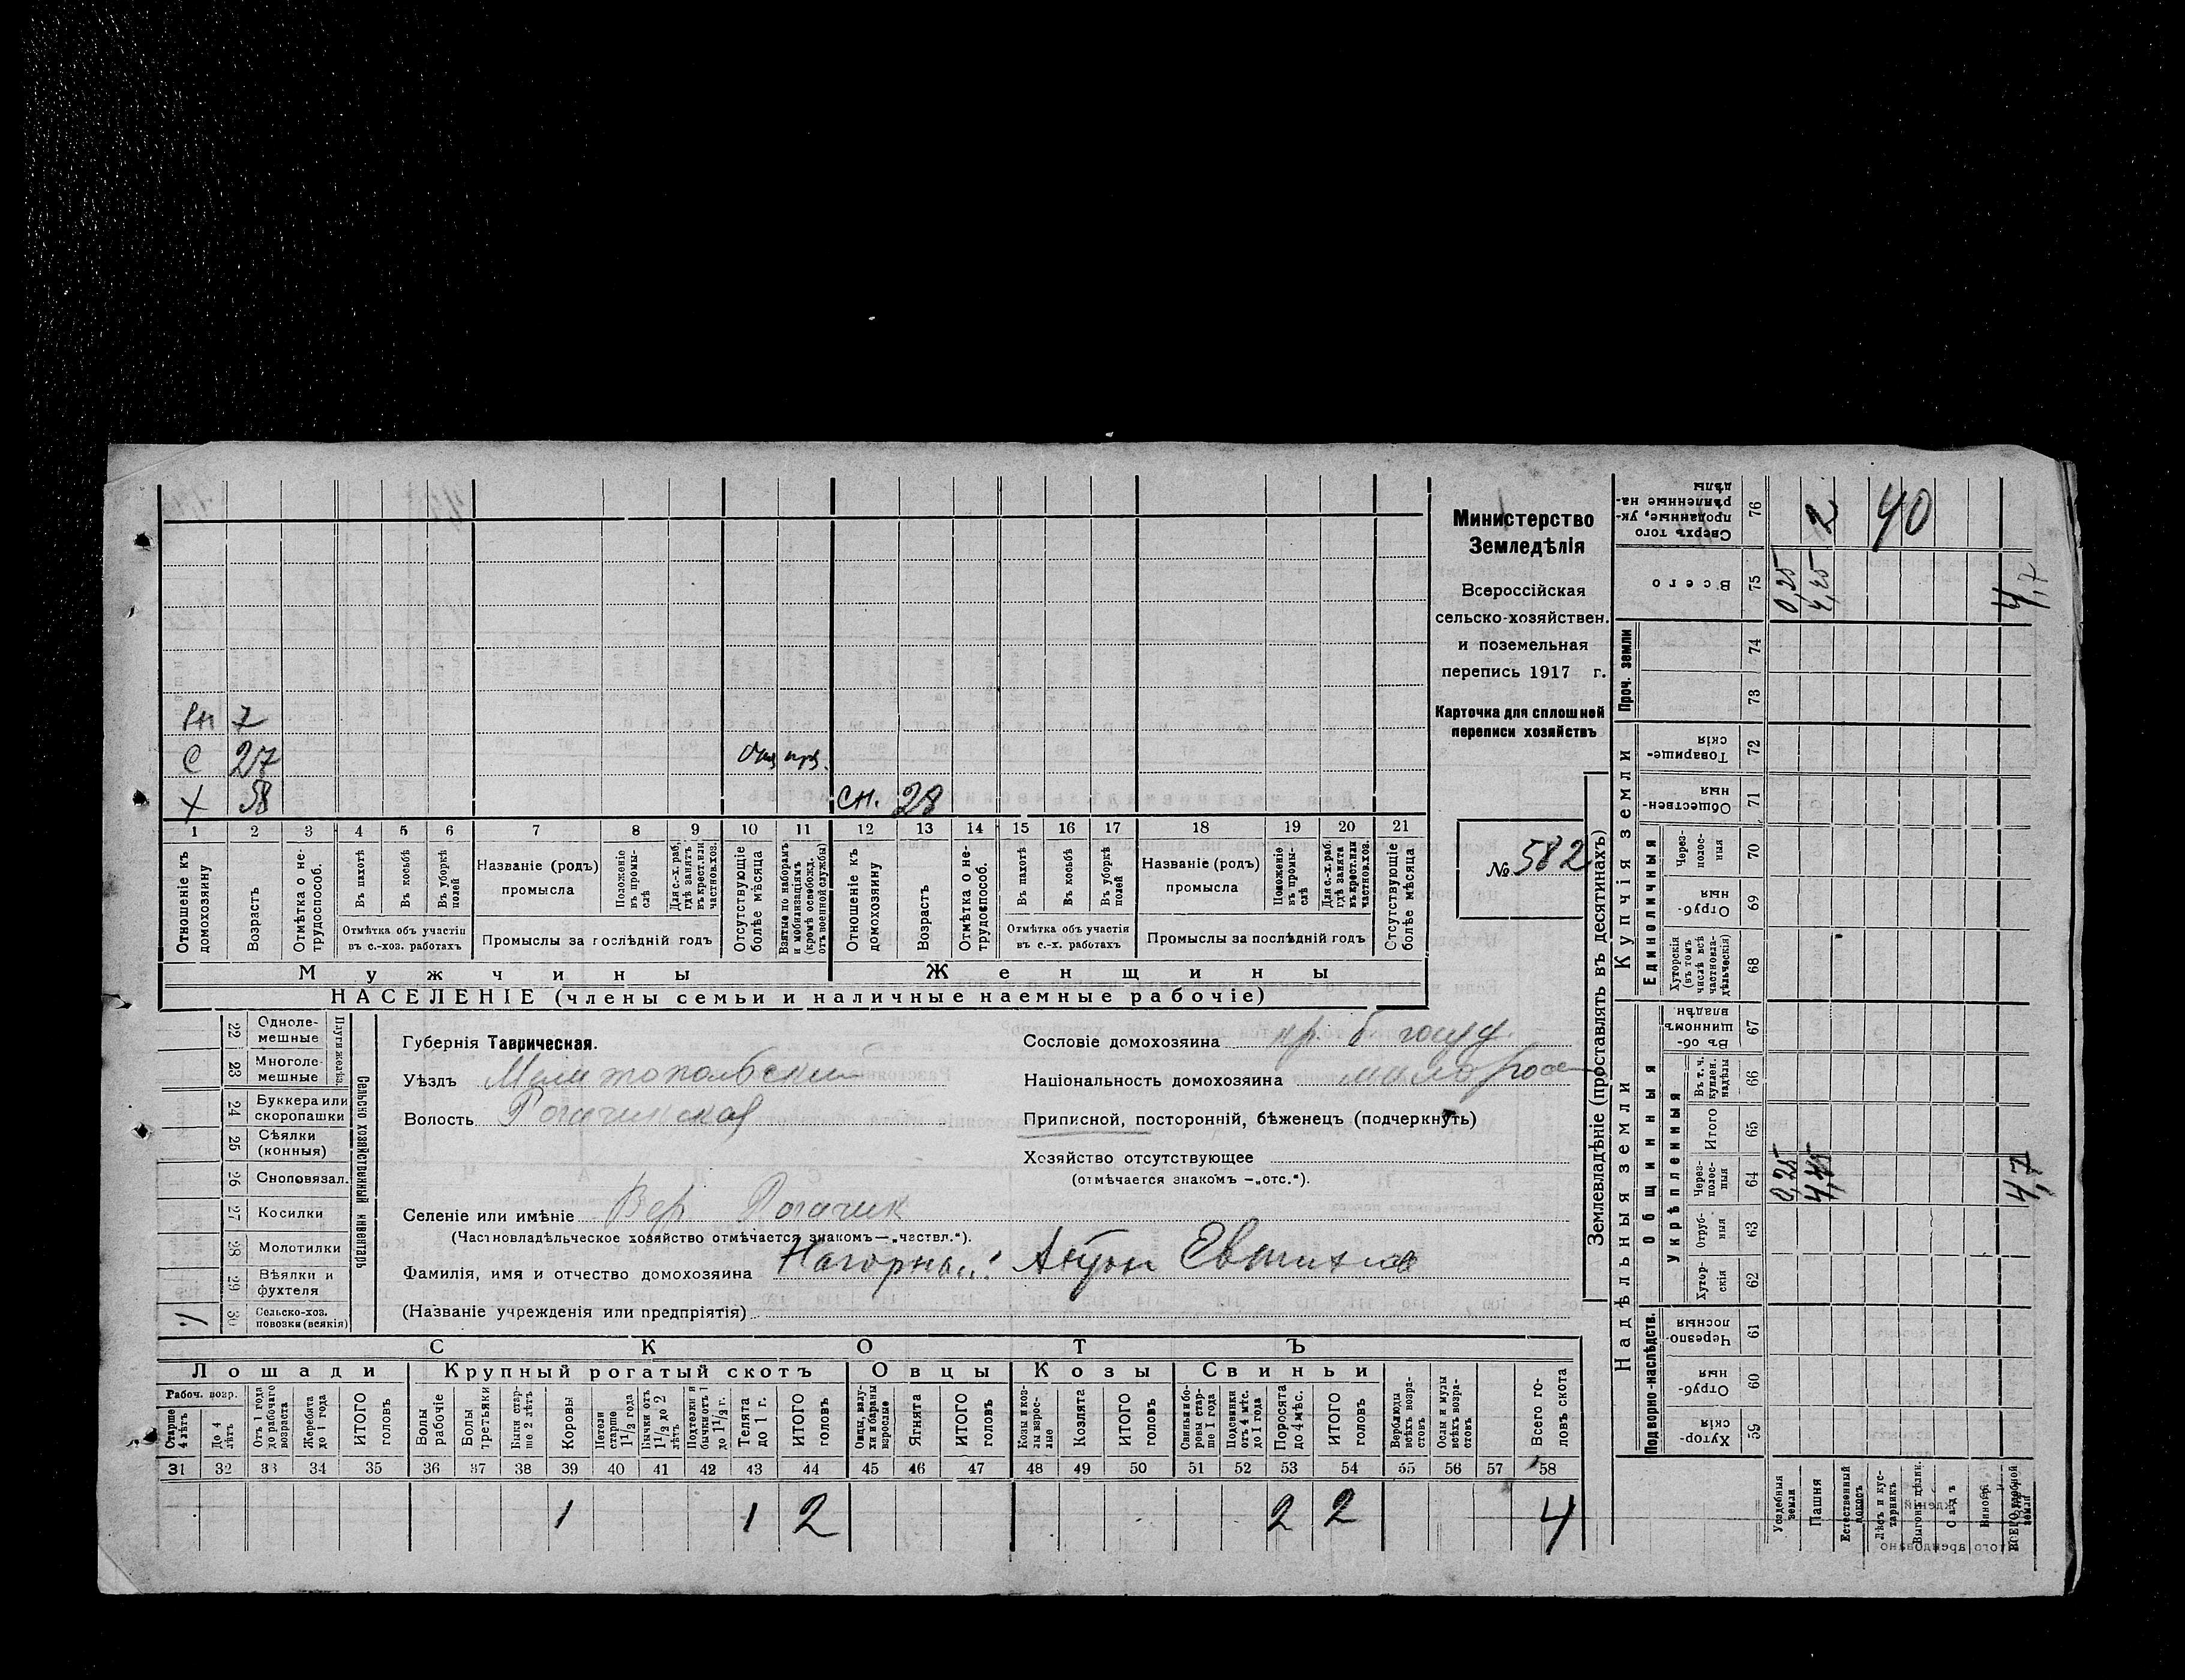 Рн 7
С 27
Х 58 сн. 28
1 2 3 4 5 6 7 8 9 10 11 12 13 14 15 16 17 18 19 20 21
Отношеніе къ домохозяину
Возрастъ
Отмѣтка о нетрудоспособ.
Въ пахотѣ
Въ косьбѣ
Въ уборкѣ полей
Отмѣтка объ участіи
въ с.-хоз. работахъ
Названіе (родъ)
промысла
Положеніе въ промыслѣ
Для с.-х. раб. гдѣ занятъ въ крест. или частнов. хоз.
Промыслы за послѣдній годъ
Отсутствующіе болѣе мѣсяца
Взятые по наборамъ и мобилизаціямъ (кромѣ освобожд. отъ военной службы)
Отношеніе къ домохозяину
Возрастъ
Отмѣтка о нетрудоспособ.
Въ пахотѣ
Въ косьбѣ
Въ уборкѣ полей
Отмѣтка объ участіи
въ с.-х. работахъ
Названіе (родъ)
промысла
Положеніе въ промыслѣ
Для с.-х. раб. гдѣ занята въ крест. или частнов. хоз.
Промыслы за послѣдній годъ
Отсутствующіе болѣе мѣсяца
Мужчины Женщины
НАСЕЛЕНІЕ (члены семьи и наличные наемные рабочіе)
Министерство
Земледѣлія
Всероссійская
сельско-хозяйствен.
и поземельная
перепись 1917 г.
Карточка для сплошной
переписи хозяйствъ
№ 582
22 Однолемешные
23 Многолемешные
Плуги желѣз.
24 Буккера или скоропашки
25 Сѣялки (конныя)
26 Сноповязал.
27 Косилки
28 Молотилки
29 Вѣялки и фухтеля
30 Сельско-хоз. повозки (всякія)
Сельско хозяйственный инвентарь
Губернія Таврическая.
Уѣздъ Мелитопольский
Волость Рогачинская
Сословіе домохозяина кр. б. госуд.
Національность домохозяина малорос
Приписной, посторонній, бѣженецъ (подчеркнуть)
Хозяйство отсутствующее
(отмѣчается знакомъ —„отс.“).
Селеніе или имѣніе Вер Рогачик
(Частновладѣльческое хозяйство отмѣчается знакомъ—„частвл.“).
Фамилія, имя и отчество домохозяина Нагорный Антон Евтихие
(Названіе учрежденія или предпріятія)
СКОТЪ
Лошади Крупный рогатый скотъ Овцы Козы Свиньи
Рабоч. возр.
Старше 4 лѣтъ
До 4 лѣтъ
Отъ 1 года до рабочаго возраста
Жеребята до 1 года
ИТОГО головъ
Волы рабочіе
Волы третьяки
Быки старше 2 лѣтъ
Коровы
Нетели старше 1 1/2 года
Бычки отъ 1 1/2 до 2 лѣтъ
Подтелки и бычки отъ 1 до 1 1/2 г.
Телята до 1 г.
ИТОГО головъ
Овцы, валухи и бараны взрослые
Ягнята
ИТОГО головъ
Козы и козлы взрослые
Козлята
ИТОГО головъ
Свиньи и боровы старше 1 года
Подсвинки отъ 4 мѣс. до 1 года
Поросята до 4 мѣс.
ИТОГО головъ
Верблюды всѣхъ возрастовъ
Ослы и мулы всѣхъ возрастовъ
Всего головъ скота
31 32 33 34 35 36 37 38 39 40 41 42 43 44 45 46 47 48 49 50 51 52 53 54 55 56 57 58
1 1 2 2 2 4
Землевладѣніе (проставлять въ десятинахъ)
Надѣльныя земли Купчія земли Проч. земли
Подворно-наслѣдств.
Общинныя
Укрѣпленныя
Единоличныя
59 Хуторскія
60 Отрубныя
61 Черезполосныя
62 Хуторскія
63 Отрубныя
64 Черезполосныя 0,25 4,45 4,7
65 Итого
66 Въ т. ч. куплен. надѣлы
67 Въ общинномъ владѣн.
68 Хуторскія (въ томъ числѣ всѣ частновладѣльческія)
69 Отрубныя
70 Черезполосныя
71 Общественныя
72 Товарищескія
73
74
75 Всего 0,25 4,45 4,7
76 Сверхъ того проданные, укрѣпленные надѣлы 2 40
Усадебныя земли
Пашня
Естественный покосъ
Лѣсъ и кустарникъ
Садъ